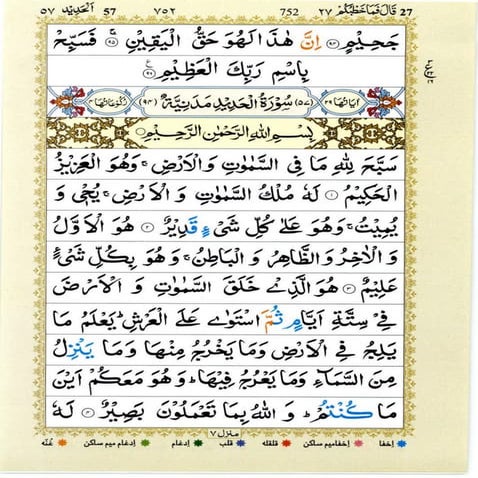 ٥٧ اَلْحَدِيْد 57 ٧٥٢ 752 ٢٧ قَالَ فَمَا خَطْبُكُمْ 27
جَحِيْمٍ ﴿٩٤﴾ اِنَّ هٰذَا لَهُوَ حَقُّ الْيَقِيْنِ ﴿٩٥﴾ فَسَبِّحْ
بِاسْمِ رَبِّكَ الْعَظِيْمِ ﴿٩٦﴾
اٰيَاتُهَا ٢٩ (٥٧) سُوْرَةُ الْحَدِيْدِ مَدَنِيَّةٌ (٩٤) رُكُوْعَاتُهَا ٤
بِسْمِ اللّٰهِ الرَّحْمٰنِ الرَّحِيْمِ
سَبَّحَ لِلّٰهِ مَا فِى السَّمٰوٰتِ وَالْاَرْضِ ۚ وَهُوَ الْعَزِيْزُ
الْحَكِيْمُ ﴿١﴾ لَهٗ مُلْكُ السَّمٰوٰتِ وَ الْاَرْضِ ۚ يُحْيٖ وَ
يُمِيْتُ ۚ وَهُوَ عَلٰى كُلِّ شَىْءٍ قَدِيْرٌ ﴿٢﴾ هُوَ الْاَوَّلُ
وَ الْاٰخِرُ وَ الظَّاهِرُ وَ الْبَاطِنُ ۚ وَ هُوَ بِكُلِّ شَىْءٍ
عَلِيْمٌ ﴿٣﴾ هُوَ الَّذِىْ خَلَقَ السَّمٰوٰتِ وَ الْاَرْضَ
فِىْ سِتَّةِ اَيَّامٍ ثُمَّ اسْتَوٰى عَلَى الْعَرْشِ ؕ يَعْلَمُ مَا
يَلِجُ فِى الْاَرْضِ وَمَا يَخْرُجُ مِنْهَا وَمَا يَنْزِلُ
مِنَ السَّمَآءِ وَمَا يَعْرُجُ فِيْهَا ؕ وَ هُوَ مَعَكُمْ اَيْنَ
مَا كُنْتُمْ ؕ وَ اللّٰهُ بِمَا تَعْمَلُوْنَ بَصِيْرٌ ﴿٤﴾ لَهٗ
منزل ٧
اخفا اخفامیم ساکن قلقله قلب ادغام ادغام میم ساکن غنّه